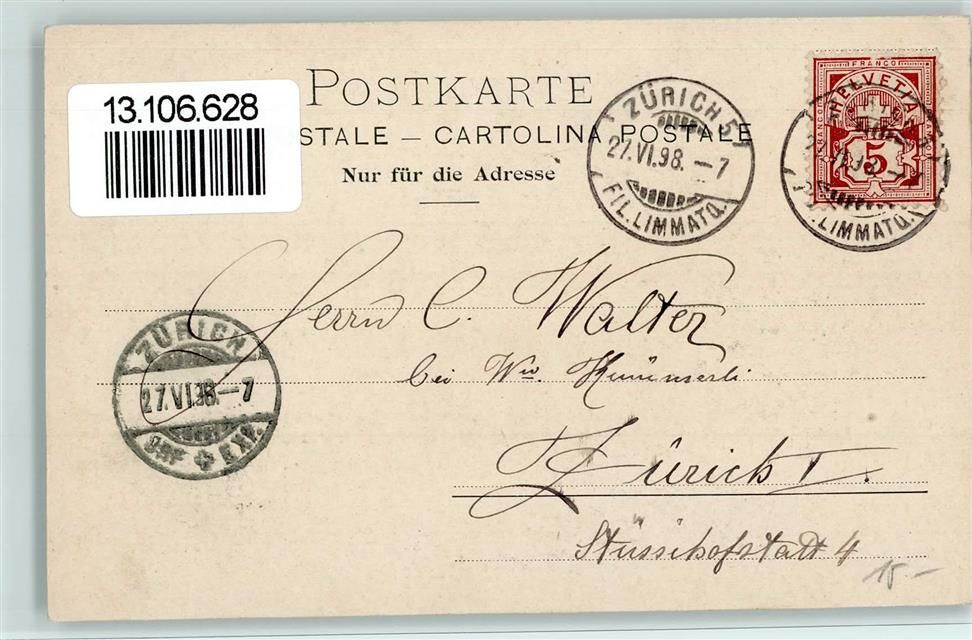 13.106.628
POSTKARTE
STALE – CARTOLINA POSTALE
Nur für die Adresse
ZÜRICH 5
27.VI.98. –7
FIL. LIMMATQ.
FRANCO
HELVETIA
FRANCO
FRANCO
5
LIMMATQ.
Herrn C. Walter
bei Ww.
Zürich I.
Stüssihofstatt 4
15.–
ZÜRICH
27.VI.98.–7
BRF EXP.